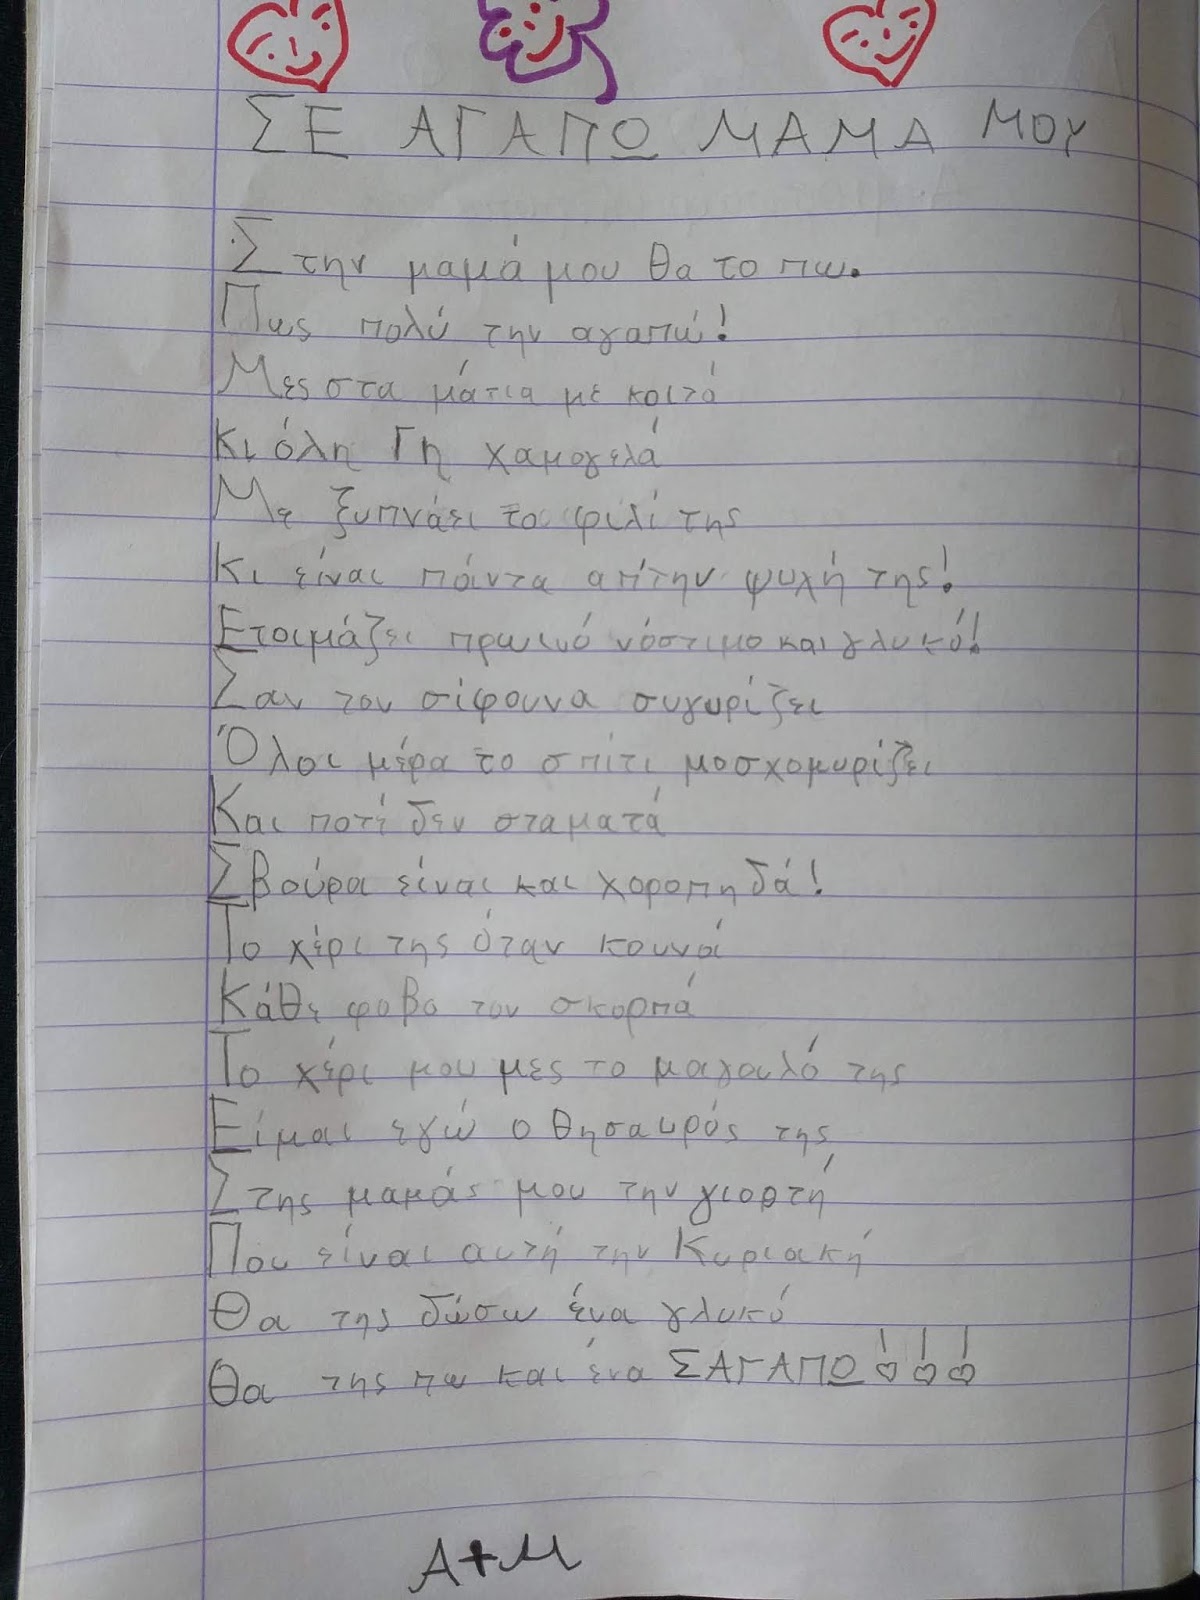 ΣΕ ΑΓΑΠΩ ΜΑΜΑ ΜΟΥ
Στην μαμά μου θα το πω.
Πως πολύ την αγαπώ!
Μες στα μάτια με κοιτά
Κι όλη Γη χαμογελά
Με ξυπνάει το φιλί της
Κι είναι πάντα απ'την ψυχή της!
Ετοιμάζει πρωινό νόστιμο και γλυκό!
Σαν τον σίφουνα συγυρίζει
Όλοι μέρα το σπίτι μοσχομυρίζει
Και ποτέ δεν σταματά
Σβούρα είναι και χοροπηδά!
Το χέρι της όταν κουνά
Κάθε φοβο τον σκορπά
Το χέρι μου μες το μαγουλό της
Είμαι εγώ ο θησαυρός της
Στης μαμάς μου την γιορτή
Που είναι αυτή την Κυριακή
Θα της δώσω ένα γλυκό
Θα της πω και ένα ΣΑΓΑΠΩ!!!
Α+Μ